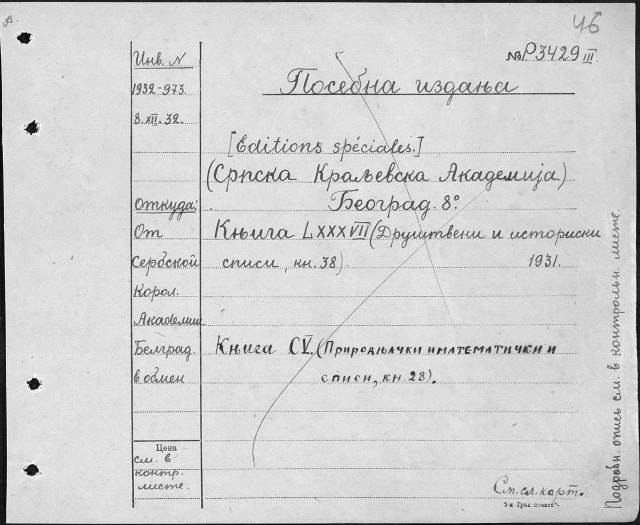 46
№ P3429 III.
Инв. N
1932-973.
8.XII.32.
Откуда:
От
Сербской
Корол.
Академии
Белград
в обмен
Цена
см. в
контр.
листе.
Посебна издања
[Editions spéciales.]
(Српска Краљевска Академија)
Београд. 8°
Књига LXXXVII (Друштвени и историски
списи, кн. 38). 1931.
Књига CV. (Природњачки и математички и
списи, кн. 28).
См. сл. карт.
Подробн. опись см. в контрольн. листе.